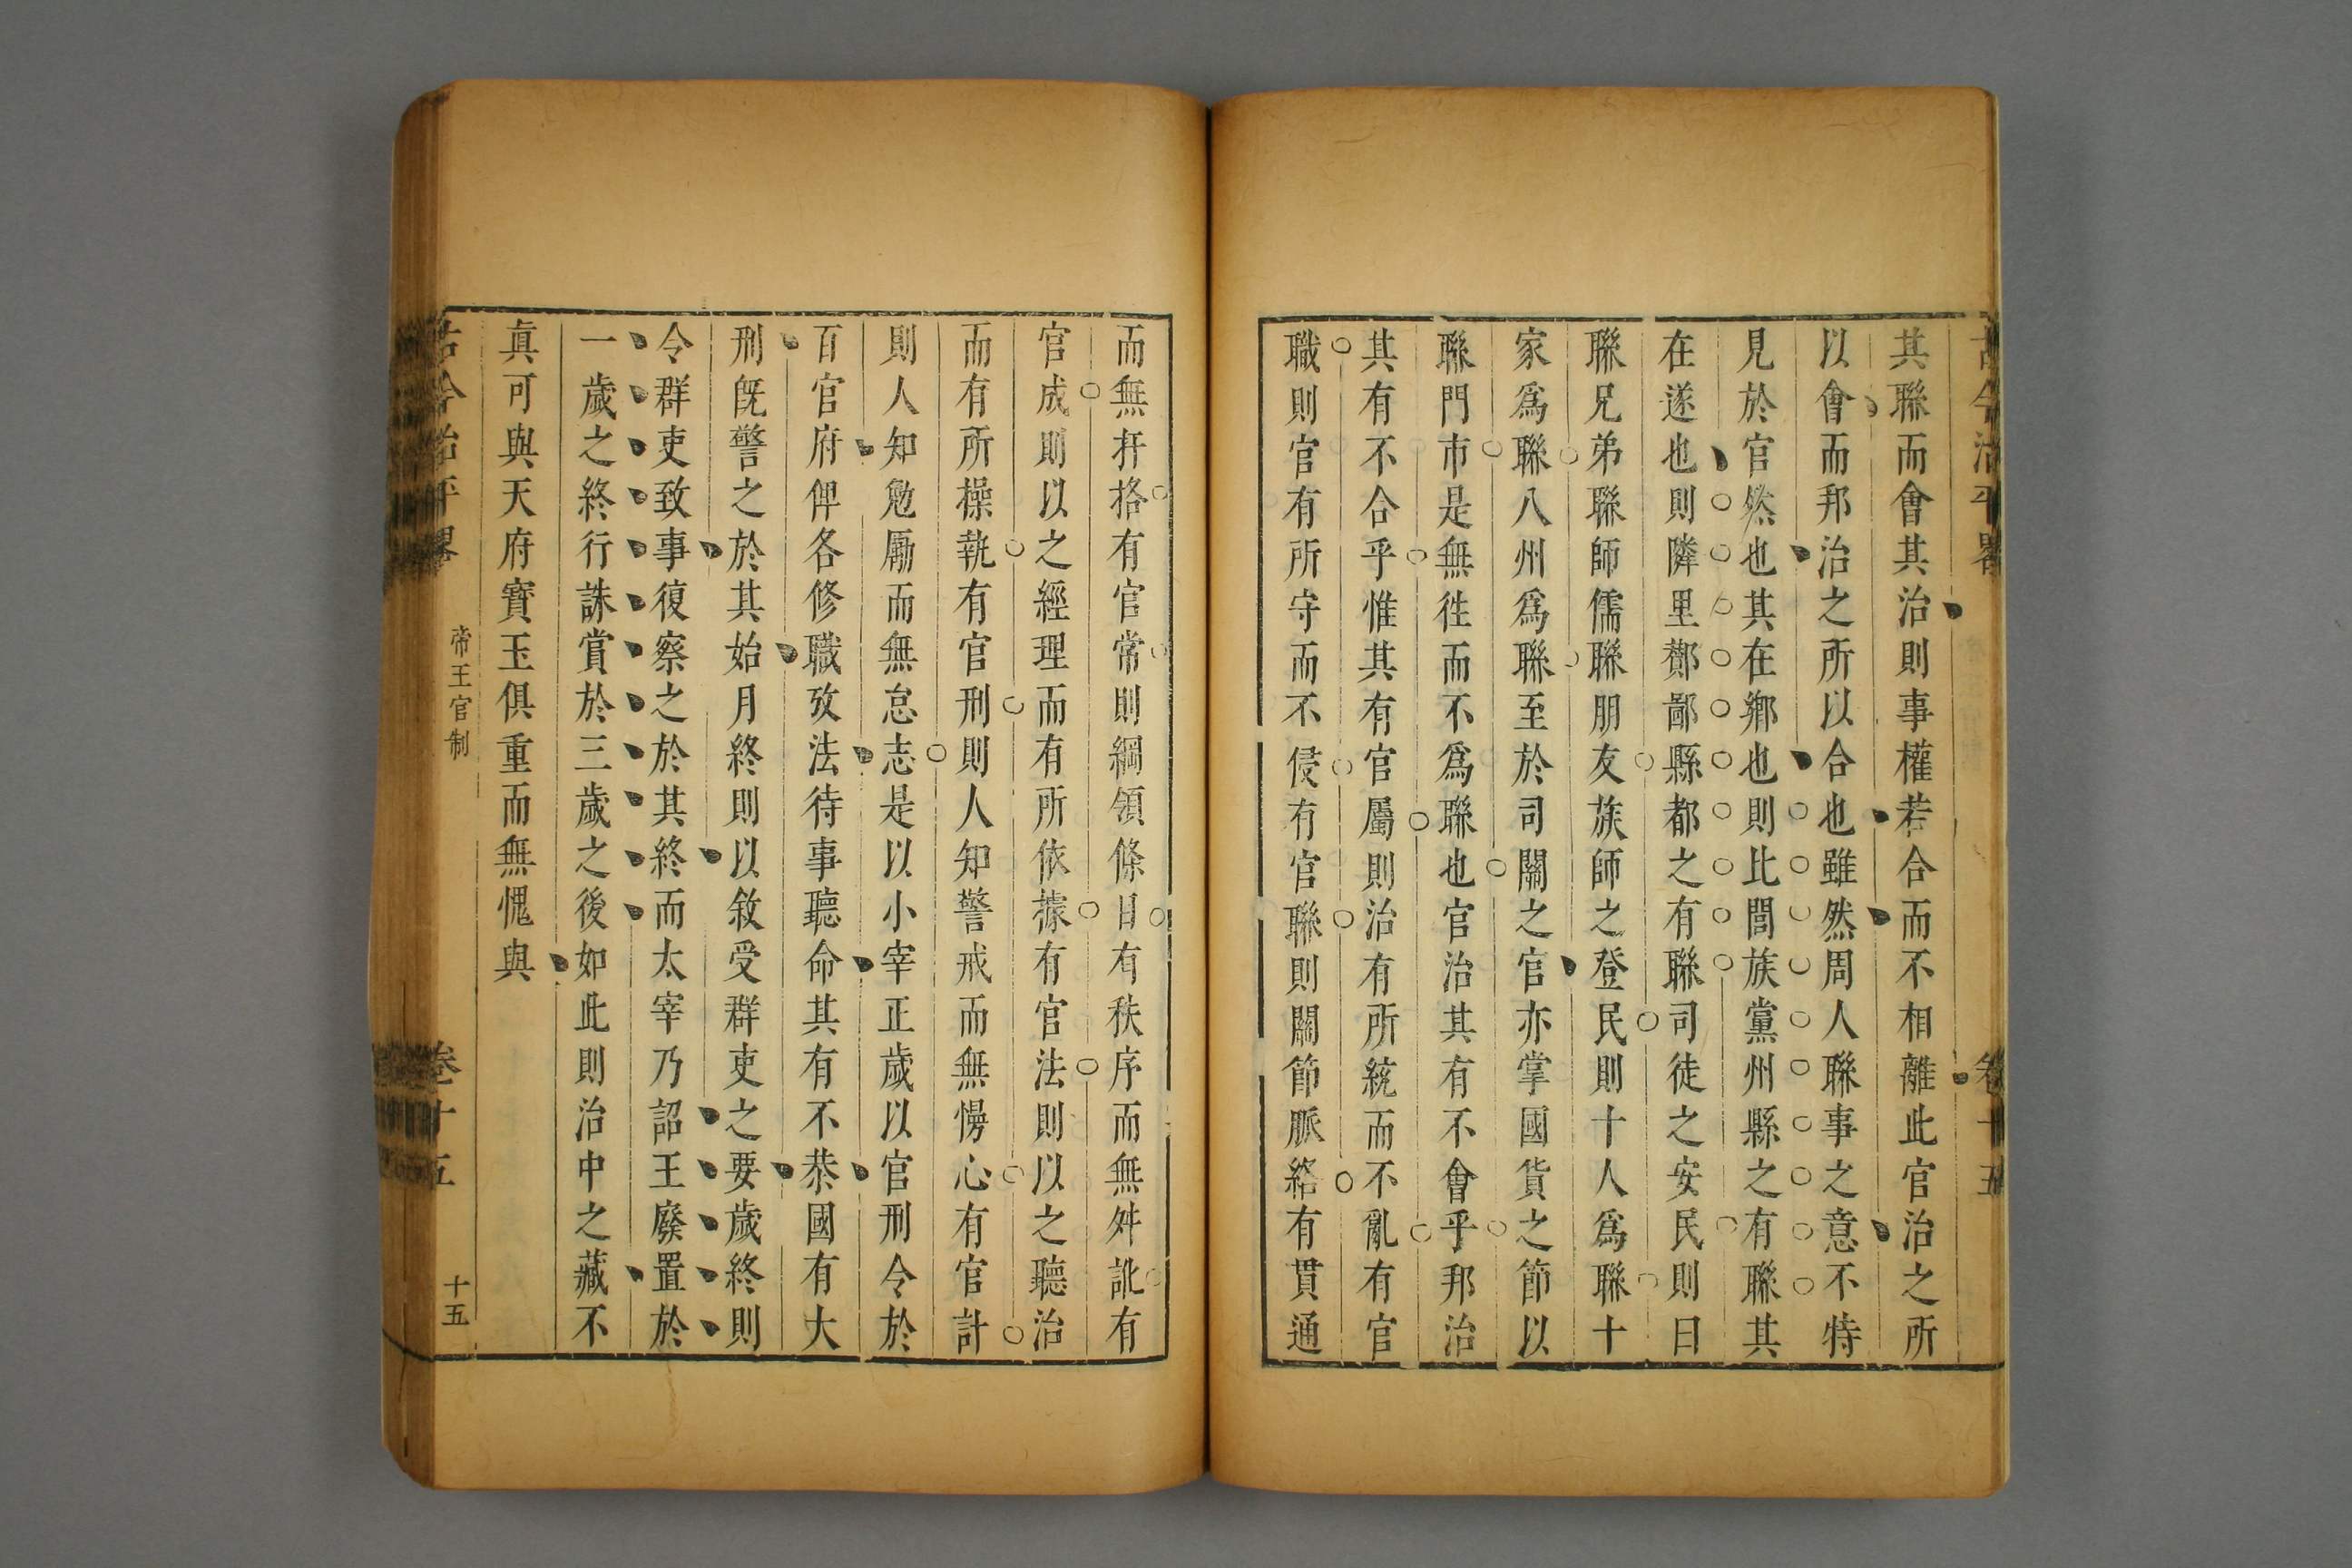 古今治平畧 卷十五
其聯而會其治則事權若合而不相離此官治之所
以會而邦治之所以合也雖然周人聯事之意不特
見於官然也其在鄉也則比閭族黨州縣之有聯其
在遂也則隣里酇鄙縣都之有聯司徒之安民則曰
聯兄弟聯師儒聯朋友族師之登民則十人爲聯十
家爲聯八州爲聯至於司關之官亦掌國貨之節以
聯門市是無徃而不爲聯也官治其有不會乎邦治
其有不合乎惟其有官屬則治有所統而不亂有官
職則官有所守而不侵有官聯則關節脈絡有貫通
而無扞格有官常則綱領條目有秩序而無舛訛有
官成則以之經理而有所依據有官法則以之聽治
而有所操執有官刑則人知警戒而無慢心有官計
則人知勉勵而無怠志是以小宰正歲以官刑令於
百官府俾各修職攷法待事聽命其有不恭國有大
刑既警之於其始月終則以敘受群吏之要歲終則
令群吏致事復察之於其終而太宰乃詔王廢置於
一歲之終行誅賞於三歲之後如此則治中之藏不
眞可與天府寳玉俱重而無愧與
古今治平畧 帝王官制 卷十五 十五